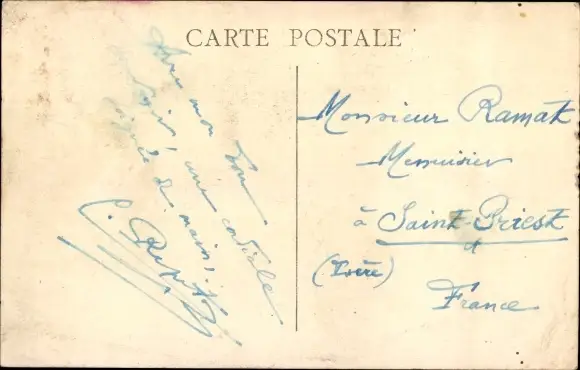 CARTE POSTALE
Avec mon bon
Souvenir, une cordiale
poignée de mains,
Monsieur Ramat
Menuisier
à Saint-Priest
(Isère)
France